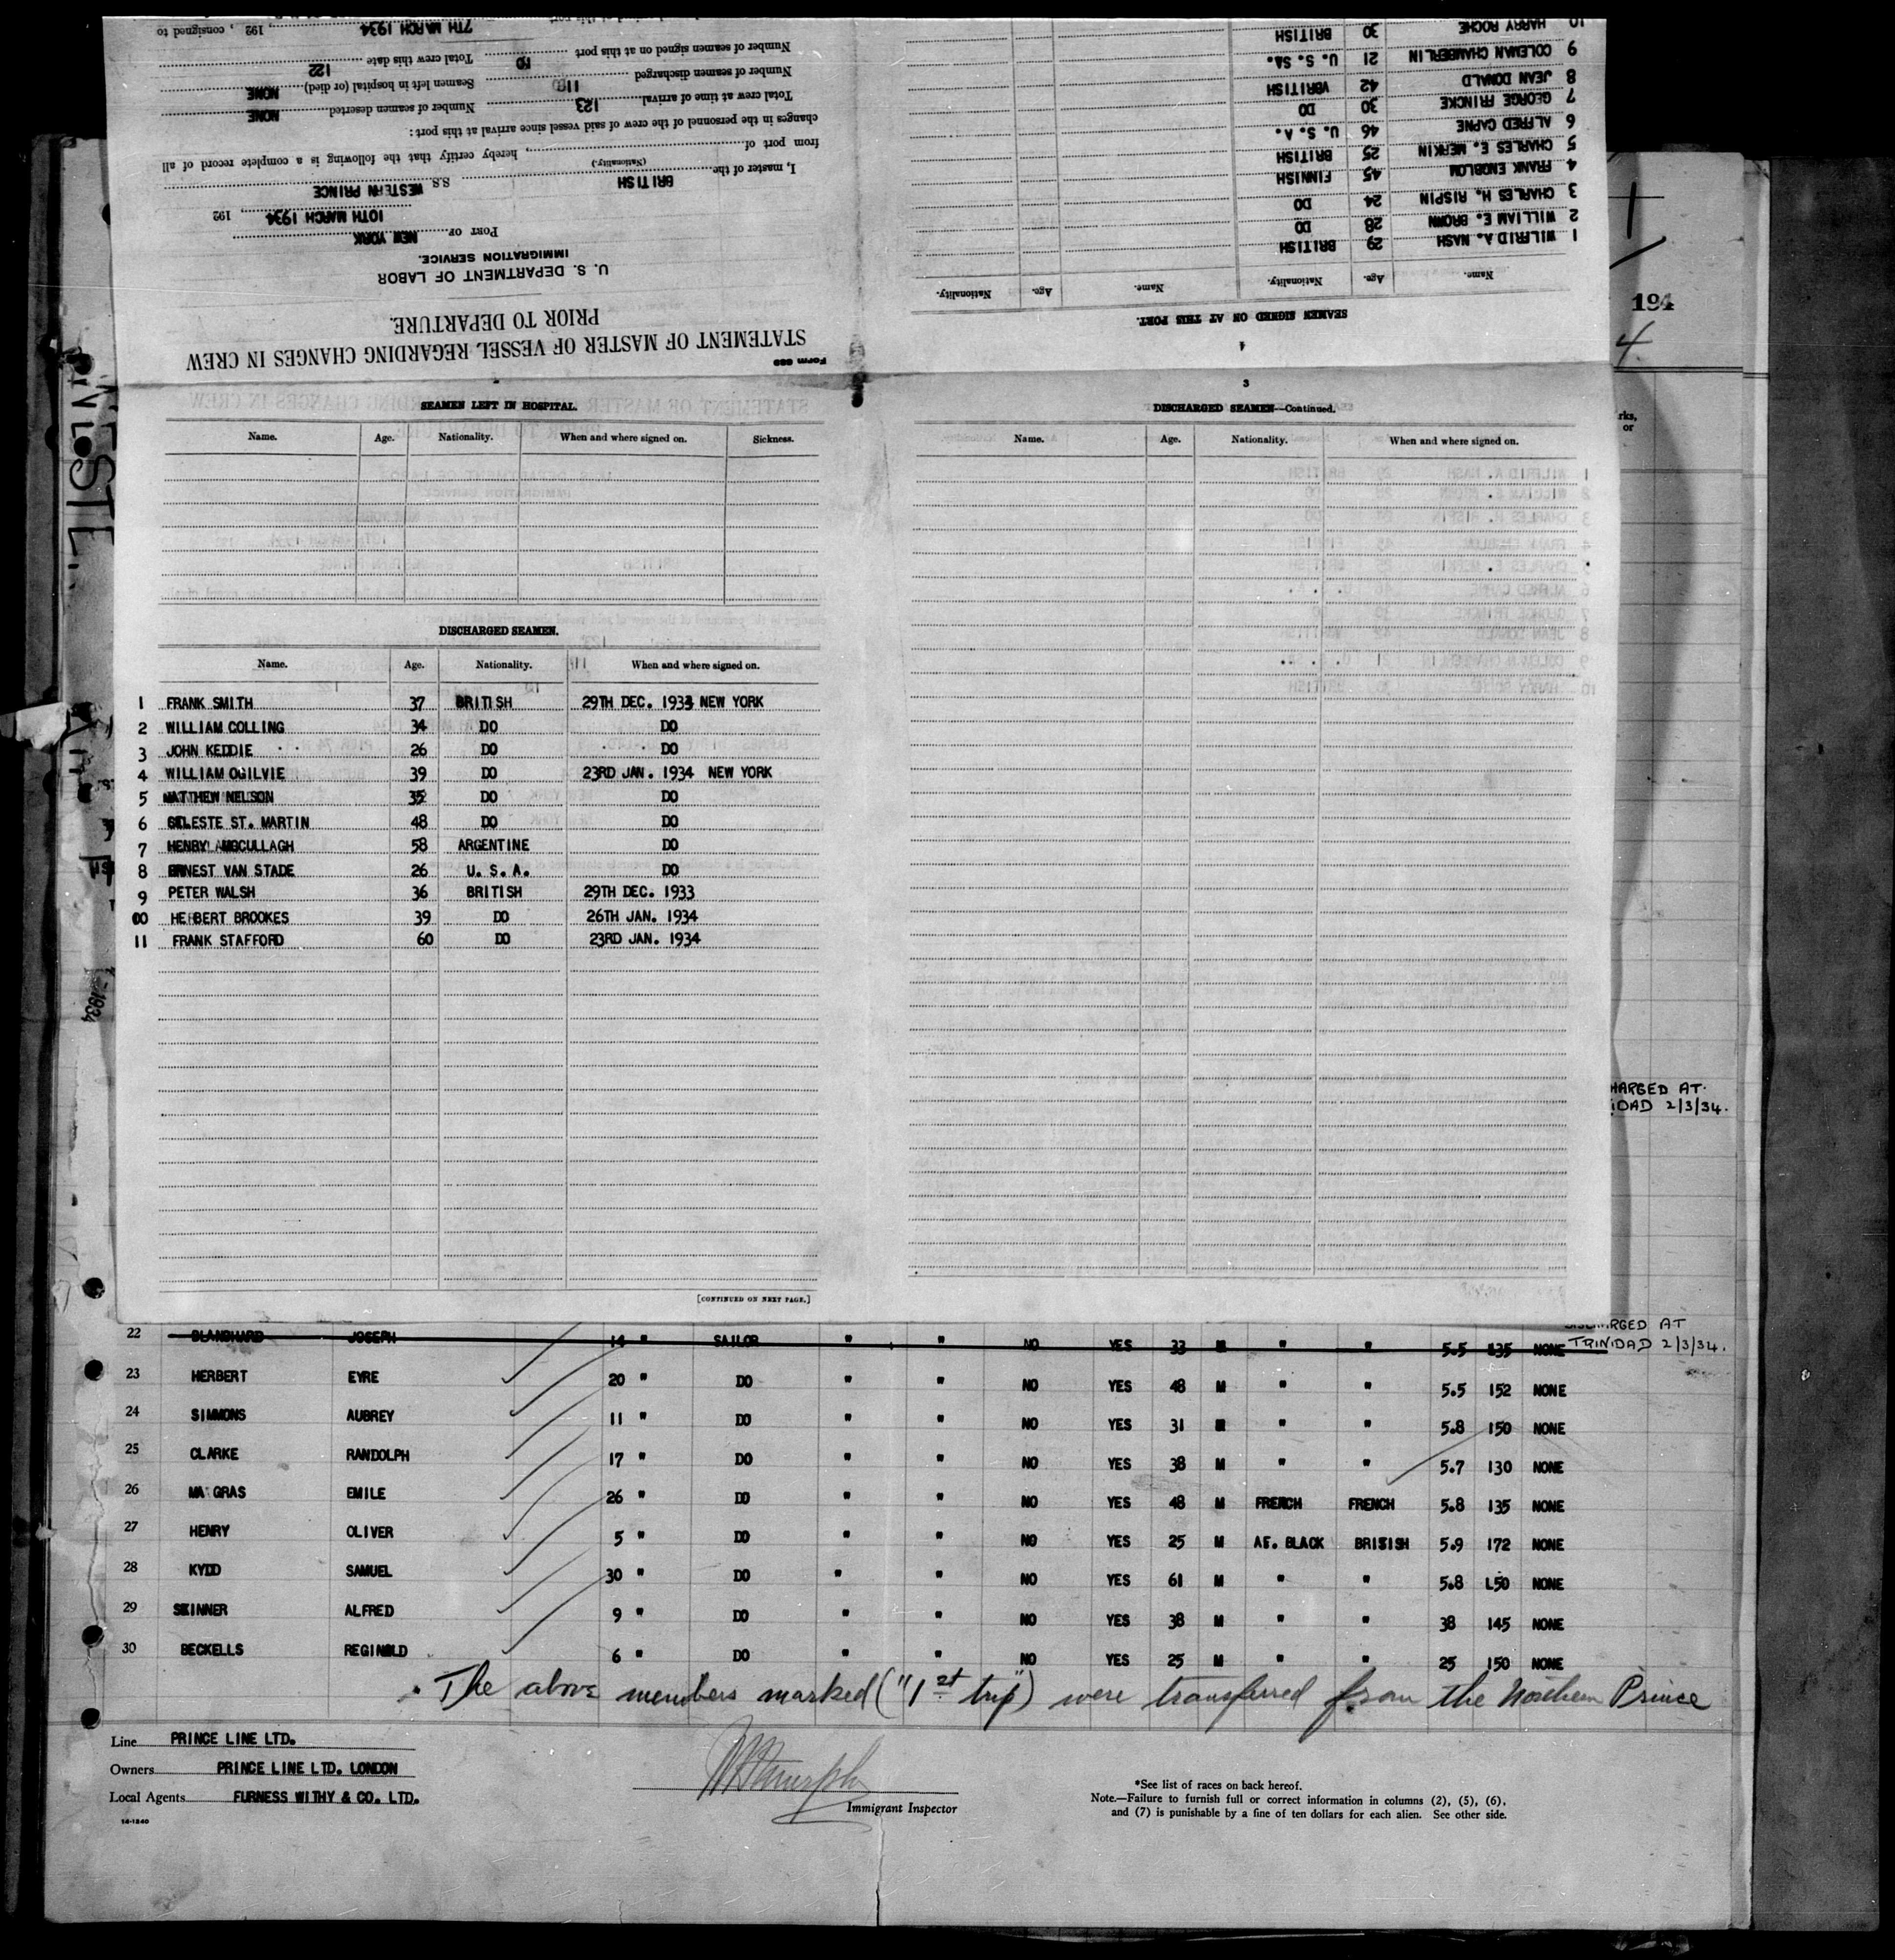 Form 689
STATEMENT OF MASTER OF VESSEL REGARDING CHANGES IN CREW
PRIOR TO DEPARTURE.
U. S. DEPARTMENT OF LABOR
IMMIGRATION SERVICE.
Port of NEW YORK
10TH MARCH 1934, 192
I, master of the BRITISH S.S. WESTERN PRINCE
(Nationality.)
from port of , hereby certify that the following is a complete record of all
changes in the personnel of the crew of said vessel since arrival at this port:
Total crew at time of arrival 123 Number of seamen deserted NONE
Number of seamen discharged 11 Seamen left in hospital (or died) NONE
Number of seamen signed on at this port 10 Total crew this date 122
7TH MARCH 1934, 192 , consigned to
4
SEAMEN SIGNED ON AT THIS PORT.
Name. Age. Nationality. Name. Age. Nationality.
1 WILFRID A. NASH 29 BRITISH
2 WILLIAM E. BROWN 28 DO
3 CHARLES H. RISPIN 24 DO
4 FRANK ENGBLOM 45 FINNISH
5 CHARLES E. MERKIN 25 BRITISH
6 ALFRED CAPNE 46 U. S. A.
7 GEORGE FRINCKE 30 DO
8 JEAN DONALD 42 VBRITISH
9 COLEMAN CHAMBERLIN 21 U. S. SA.
10 HARRY ROCHE 30 BRITISH
SEAMEN LEFT IN HOSPITAL.
Name. Age. Nationality. When and where signed on. Sickness.
DISCHARGED SEAMEN.
Name. Age. Nationality. When and where signed on.
1 FRANK SMITH 37 BRITISH 29TH DEC. 1933 NEW YORK
2 WILLIAM COLLING 34 DO DO
3 JOHN KEDDIE 26 DO DO
4 WILLIAM OGILVIE 39 DO 23RD JAN. 1934 NEW YORK
5 MATTHEW NELSON 35 DO DO
6 CELESTE ST. MARTIN 48 DO DO
7 HENRY MCCULLAGH 58 ARGENTINE DO
8 ERNEST VAN STADE 26 U. S. A. DO
9 PETER WALSH 36 BRITISH 29TH DEC. 1933
10 HERBERT BROOKES 39 DO 26TH JAN. 1934
11 FRANK STAFFORD 60 DO 23RD JAN. 1934
[CONTINUED ON NEXT PAGE.]
3
DISCHARGED SEAMEN—Continued.
Name. Age. Nationality. When and where signed on.
194
4
rks,
or
HARGED AT
IDAD 2/3/34.
1934
22 BLANCHARD JOSEPH 14 " SAILOR " " NO YES 33 M " " 5.5 135 NONE DISCHARGED AT TRINIDAD 2/3/34.
23 HERBERT EYRE 20 " DO " " NO YES 48 M " " 5.5 152 NONE
24 SIMMONS AUBREY 11 " DO " " NO YES 31 M " " 5.8 150 NONE
25 CLARKE RANDOLPH 17 " DO " " NO YES 38 M " " 5.7 130 NONE
26 MA GRAS EMILE 26 " DO " " NO YES 48 M FRENCH FRENCH 5.8 135 NONE
27 HENRY OLIVER 5 " DO " " NO YES 25 M AF. BLACK BRISISH 5.9 172 NONE
28 KYDD SAMUEL 30 " DO " " NO YES 61 M " " 5.8 L50 NONE
29 SKINNER ALFRED 9 " DO " " NO YES 38 M " " 38 145 NONE
30 BECKELLS REGINOLD 6 " DO " " NO YES 25 M " " 25 150 NONE
The above members marked ("1st trip") were transferred from the Northern Prince
Line PRINCE LINE LTD.
Owners PRINCE LINE LTD. LONDON
Local Agents FURNESS WITHY & CO. LTD.
Immigrant Inspector
*See list of races on back hereof.
Note.—Failure to furnish full or correct information in columns (2), (5), (6),
and (7) is punishable by a fine of ten dollars for each alien. See other side.